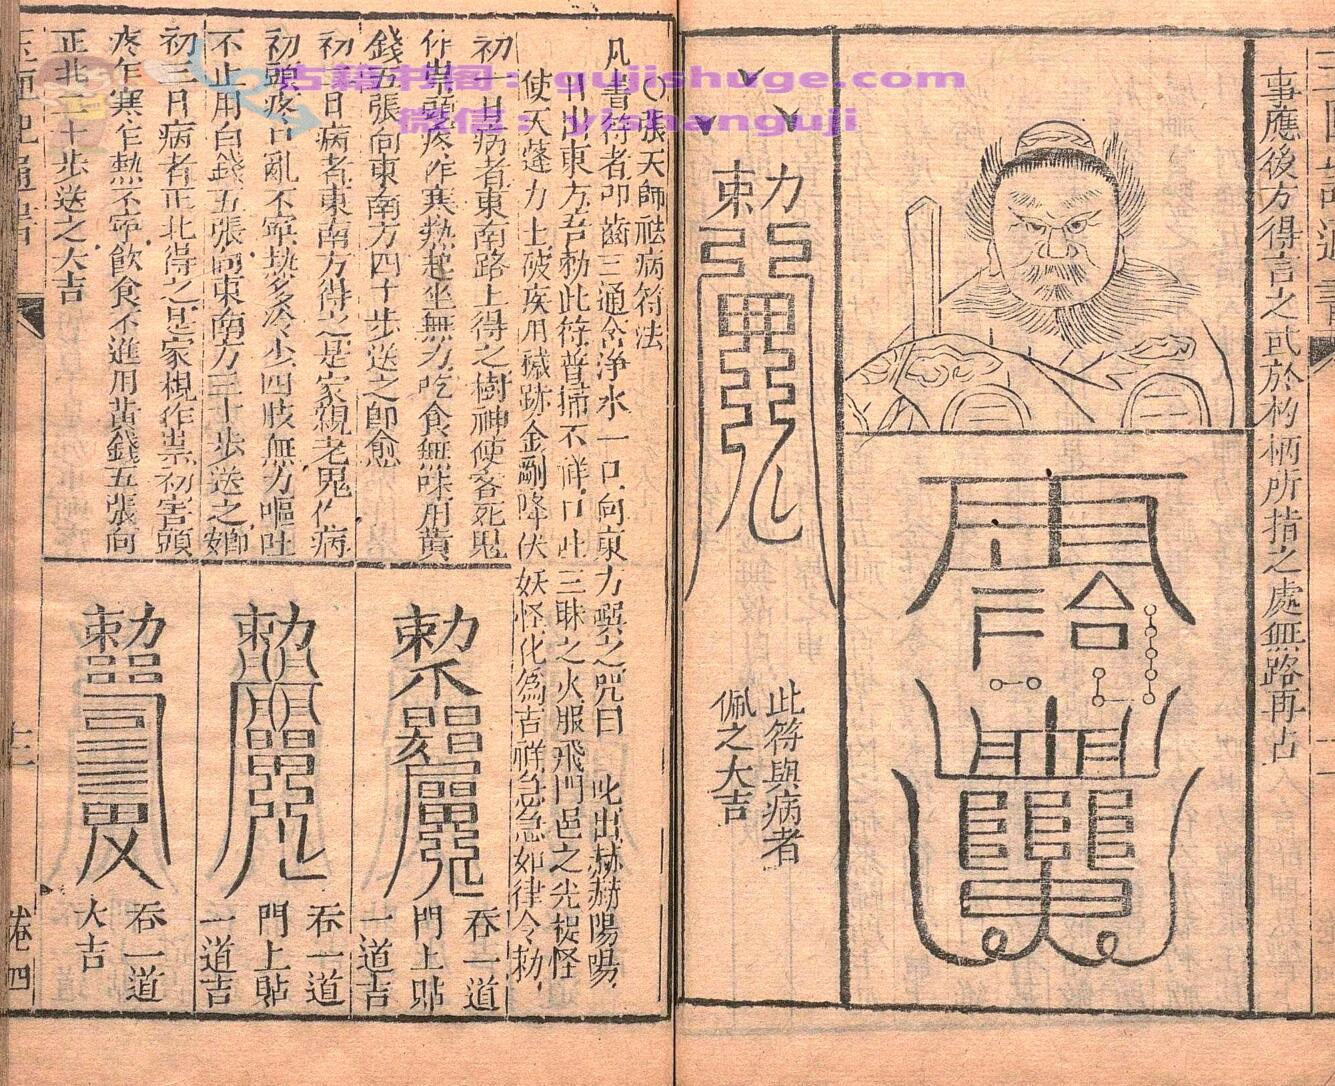 事應後方得言之或於杓柄所指之處無路再占
敕
此符與病者
佩之大吉
古籍书阁：gujishuge.com
微信：yishanguji
〇張天師祛病符法
凡書符者叩齒三通含淨水一口向東方噀之咒曰 叱出赫赫陽陽
日出東方吾勅此符普掃不祥口吐三昧之火服飛門邑之光捉怪
使天蓬力士破疾用穢跡金剛降伏妖怪化為吉祥急急如律令勅
初一日病者東南路上得之樹神使客死鬼
作祟頭疼作寒熱起坐無力吃食無味用黃
錢五張向東南方四十步送之即愈
初二日病者東南方得之是家親老鬼作病
初頭疼口亂不寧熱多冷少四肢無力嘔吐
不止用白錢五張向東南方三十步送之即
初三日病者正北得之是家親作祟初害頭
疼乍寒乍熱不寧飲食不進用黃錢五張向
正北二十步送之大吉
敕
吞一道
門上貼
一道吉
敕
吞一道
門上貼
一道吉
敕
吞一道
大吉
卷四